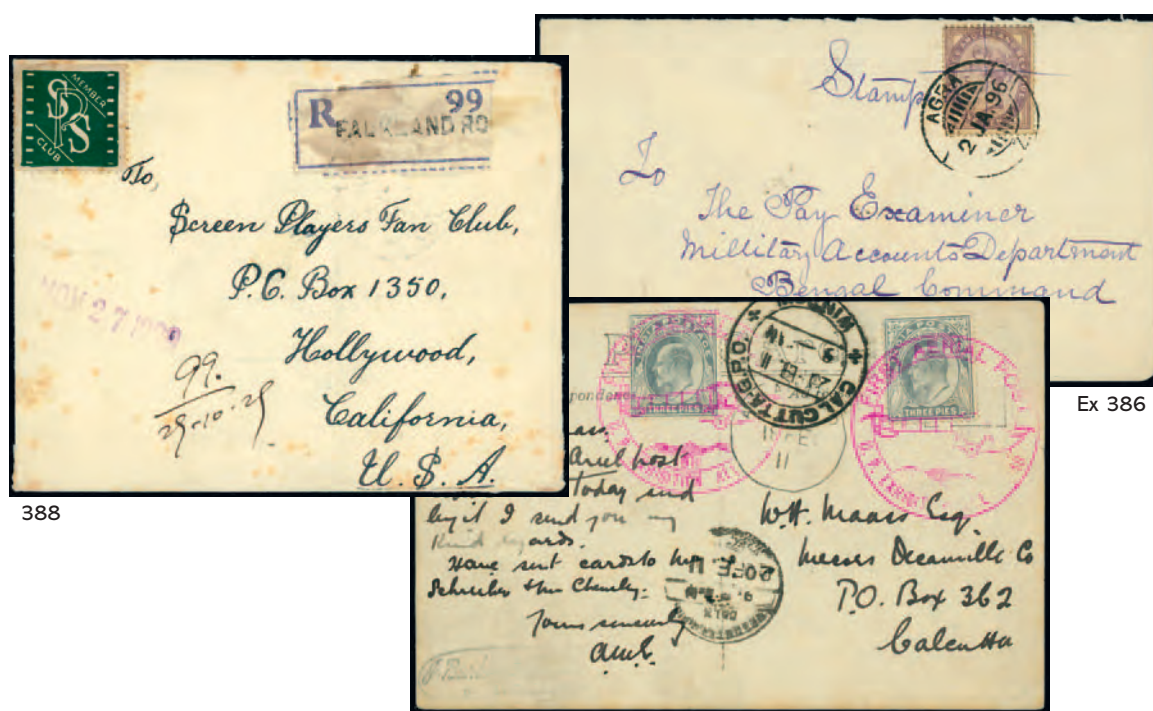 MEMBER
SPS
CLUB
R 99
FALKLAND RO
To,
Screen Players Fan Club,
P.O. Box 1350,
Hollywood,
California,
U.S.A.
NOV 27
99.
29-10-
388
Stamp
AGRA
2 JA. 96
To
The Pay Examiner
Millitary Accounts Department
Bengal Command
Ex 386
THREE PIES
THREE PIES
CALCUTTA G.P.O.
FIRST AERIAL POST
pondence
post
Today and
by it I send you my
Kind regards.
Have sent cards to
Schreiber
Yours sincerely
20 FE. 11
W.H. Maass Esq.
Messrs Decauville Co
P.O. Box 362
Calcutta